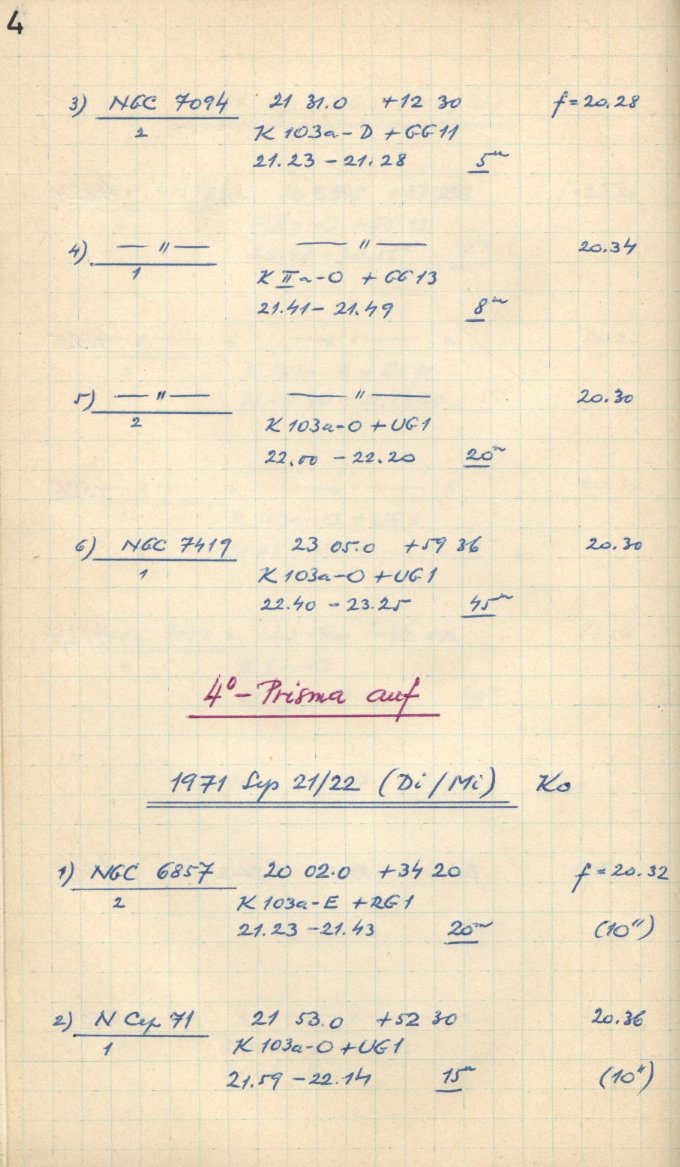 4
3) NGC 7094 21 31.0 +12 30 f=20.28
2 K 103a-D + GG11
21.23 - 21.28 5m
4) — " — — " — 20.34
1 K IIa-O + GG13
21.41 - 21.49 8m
5) — " — — " — 20.30
2 K 103a-O + UG1
22.00 - 22.20 20m
6) NGC 7419 23 05.0 +59 36 20.30
1 K 103a-O + UG1
22.40 - 23.25 45m
4°-Prisma auf
1971 Sep 21/22 (Di/Mi) Ko
1) NGC 6857 20 02.0 +34 20 f=20.32
2 K 103a-E + RG1
21.23 - 21.43 20m (10")
2) N Cep 71 21 53.0 +52 30 20.36
1 K 103a-O + UG1
21.59 - 22.14 15m (10")